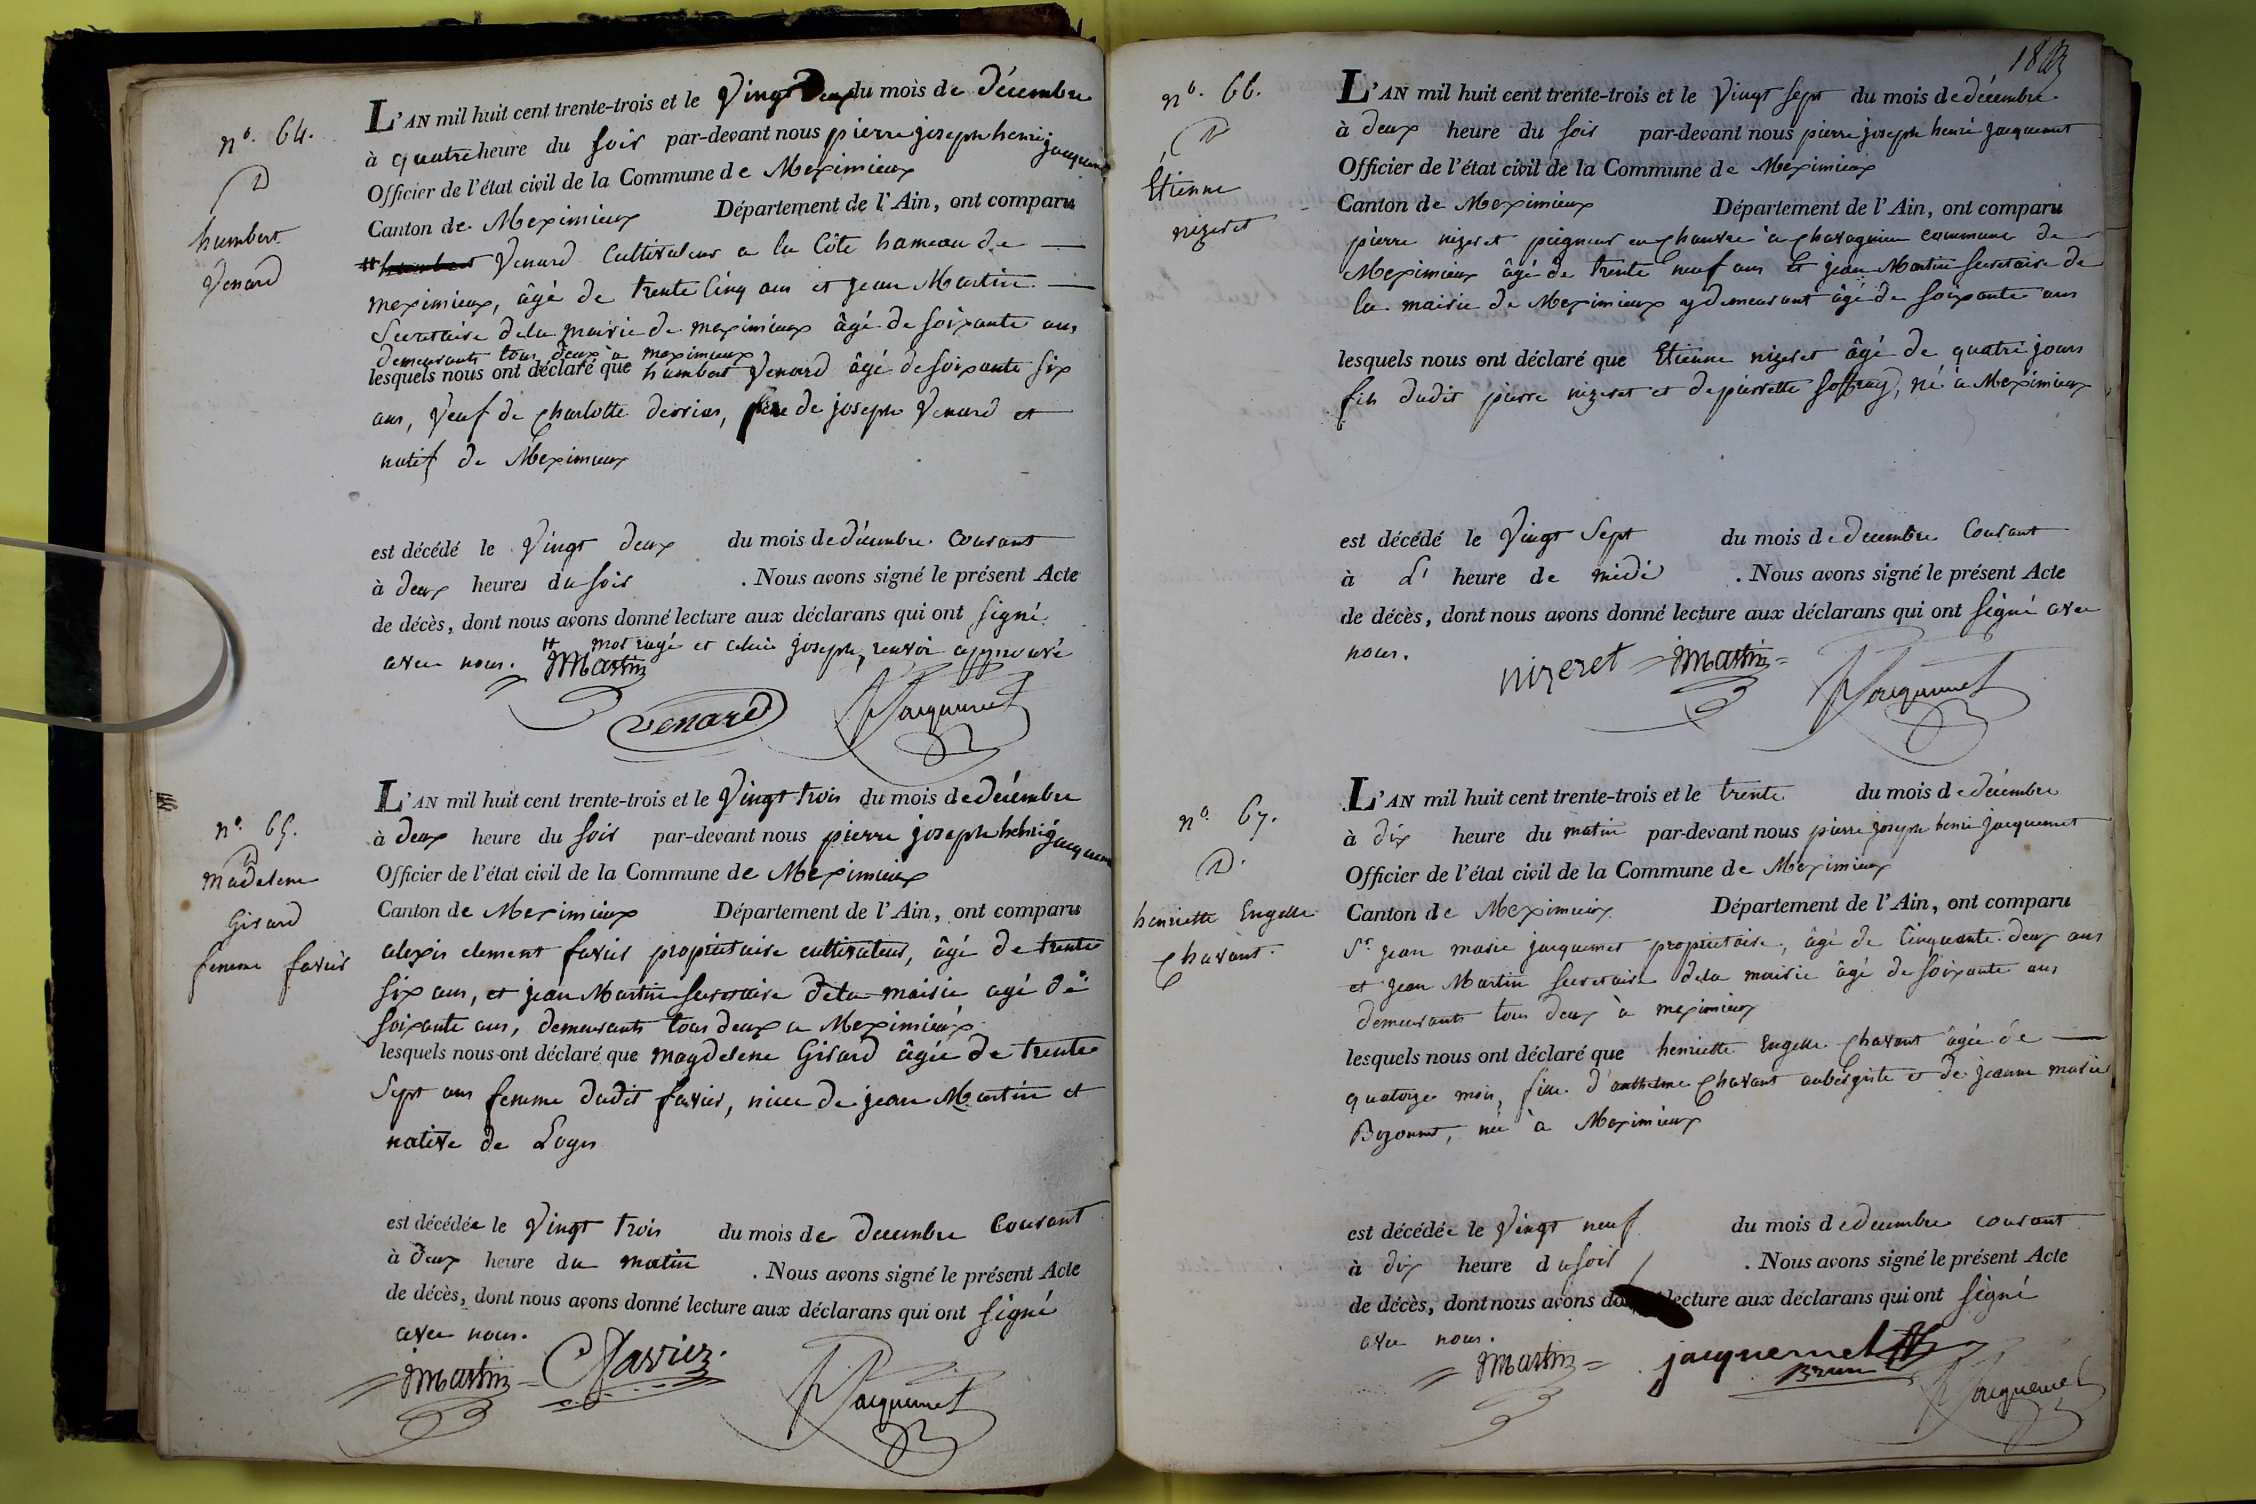 nº. 64.
D
humbert
Venard
L'AN mil huit cent trente-trois et le Vingt Deux du mois de Décembre
à quatre heure du soir par-devant nous pierre joseph henri jacquemet
Officier de l'état civil de la Commune de Meximieux
Canton de Meximieux Département de l'Ain, ont comparu
# humbert Venard Cultivateur a la Côte hameau de
meximieux, âgé de trente Cinq ans et jean Martin
Secretaire dela mairie de meximieux âgé de soixante ans
demeurants tous deux à meximieux
lesquels nous ont déclaré que humbert Venard âgé de soixante six
ans, Veuf de Charlotte derrias, père de joseph Venard et
natif de Meximieux
est décédé le Vingt deux du mois de décembre courant
à deux heures du soir . Nous avons signé le présent Acte
de décès, dont nous avons donné lecture aux déclarans qui ont signé
avec nous. # mot rayé et celui joseph, renvoi approuvé
JMartin
Venard Jacquemet
nº. 65.
D
Madelene
Girard
femme favier
L'AN mil huit cent trente-trois et le Vingt trois du mois de décembre
à deux heure du soir par-devant nous pierre joseph henri jacquemet
Officier de l'état civil de la Commune de Meximieux
Canton de Meximieux Département de l'Ain, ont comparu
alexis clement favier propriétaire cultivateur, âgé de trente
six ans, et jean Martin secretaire dela mairie agé de
soixante ans, demeurants tous deux a Meximieux
lesquels nous ont déclaré que magdelene Girard âgée de trente
sept ans femme dudit favier, niece de jean Martin et
native de Loyes
est décédée le Vingt trois du mois de decembre courant
à deux heure du matin . Nous avons signé le présent Acte
de décès, dont nous avons donné lecture aux déclarans qui ont signé
avec nous.
JMartin CFavier Jacquemet
1833
nº. 66.
D
Etienne
nizeret
L'AN mil huit cent trente-trois et le Vingt sept du mois de décembre
à deux heure du soir par-devant nous pierre joseph henri jacquemet
Officier de l'état civil de la Commune de Meximieux
Canton de Meximieux Département de l'Ain, ont comparu
pierre nizeret peigneur en chanvre à Chavagnieu commune de
Meximieux âgé de trente neuf ans Et jean Martin secretaire de
la mairie de Meximieux y demeurant âgé de soixante ans
lesquels nous ont déclaré que Etienne nizeret âgé de quatre jours
fils dudit pierre nizeret et de pierrette Soffray, né à Meximieux
est décédé le Vingt Sept du mois de decembre Courant
à L' heure de midi . Nous avons signé le présent Acte
de décès, dont nous avons donné lecture aux déclarans qui ont signé avec
nous.
nizeret JMartin Jacquemet
nº. 67.
D.
henriette Engelle
Chavant.
L'AN mil huit cent trente-trois et le trente du mois de décembre
à dix heure du matin par-devant nous pierre joseph henri jacquemet
Officier de l'état civil de la Commune de Meximieux
Canton de Meximieux Département de l'Ain, ont comparu
Sr. jean marie jacquemet propriétaire, âgé de Cinquante deux ans
et jean Martin secretaire dela mairie âgé de soixante ans
demeurants tous deux à meximieux
lesquels nous ont déclaré que henriette Engelle Chavant âgée de
quatorze mois, fille d'anthelme Chavant aubergiste et de jeanne marie
Bozonnet, née à Meximieux
est décédée le Vingt neuf du mois de decembre courant
à dix heure du soir . Nous avons signé le présent Acte
de décès, dont nous avons do lecture aux déclarans qui ont signé
avec nous.
JMartin jacquemet
Brun
Jacquemet